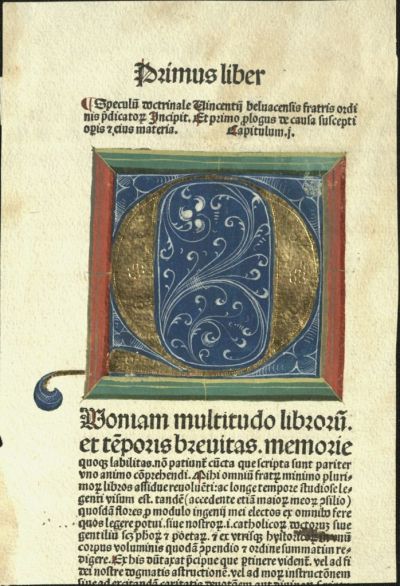 Primus liber
Speculū doctrinale Vincentij beluacensis fratris ordi
nis p̄dicatoꝝ Incipit. Et primo ꝓlogus de causa suscepti
opis ⁊ eius materia. Capitulum.j.
Q
Uoniam multitudo libroꝝ.
et tēporis breuitas. memorie
quoqꝫ labilitas. nō patiunt᷑ cūcta que scripta sunt pariter
vno animo cōprehendi. Mihi omniū fratꝝ minimo pluri
moꝝ libros assidue reuoluēti: ac longe tempore studiose le
genti visum est. tandē (accedente etiā maioꝝ meoꝝ ꝯsilio)
quosdā flores ꝓ modulo ingenij mei electos ex omnibꝰ fere
quos legere potui. siue nostroꝝ .i. catholicoꝝ doctoꝝ siue
gentiliū scꝫ ph̄oꝝ ⁊ poetaꝝ. ⁊ ex vtrisqꝫ hystoricoꝝ in vnū
corpus voluminis quodā ꝯpendio ⁊ ordine summatim re
digere. Ex his dūtaxat p̄cipue que ꝑtinere vident᷑. vel ad fi
dei nostre dogmatis astructionē. vel ad moꝝ instructionem